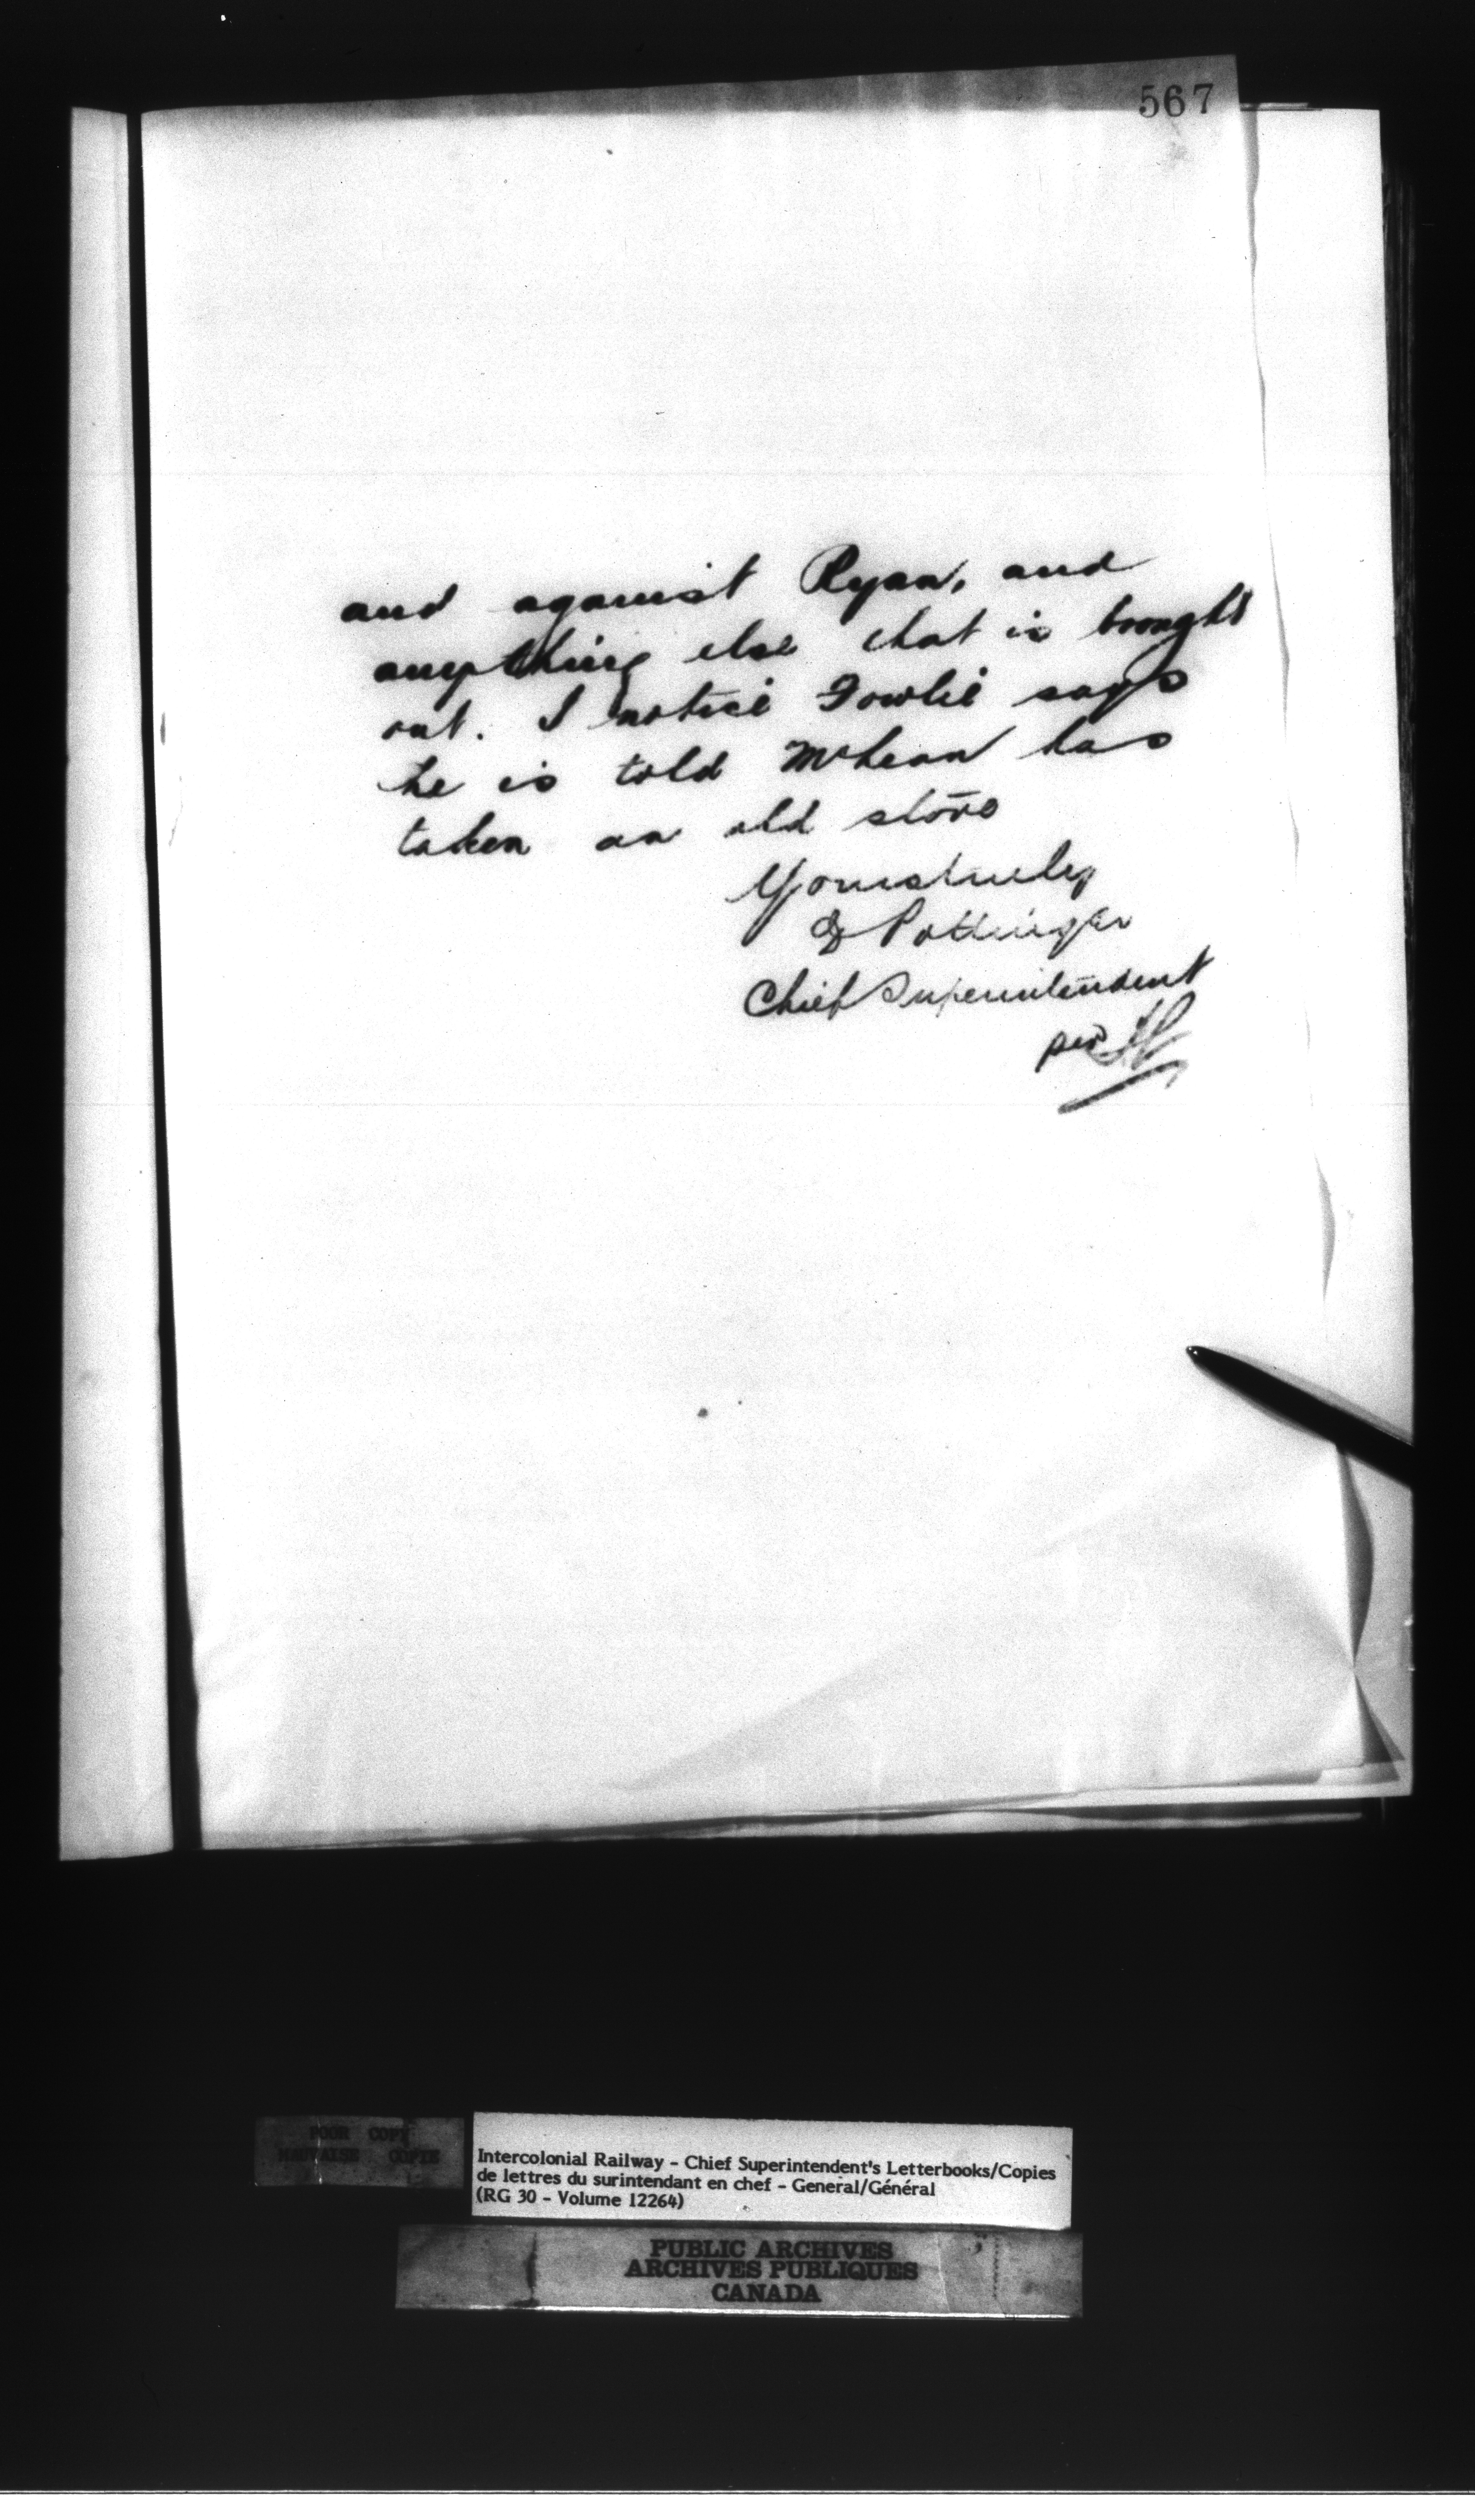 567
and against Ryan, and
anything else that is brought
out. I notice Fowlie says
he is told McLean has
taken an old stove
Yours truly
D Pottinger
Chief Superintendent
per
POOR COPY
MAUVAISE COPIE
Intercolonial Railway - Chief Superintendent's Letterbooks/Copies
de lettres du surintendant en chef - General/Général
(RG 30 - Volume 12264)
PUBLIC ARCHIVES
ARCHIVES PUBLIQUES
CANADA